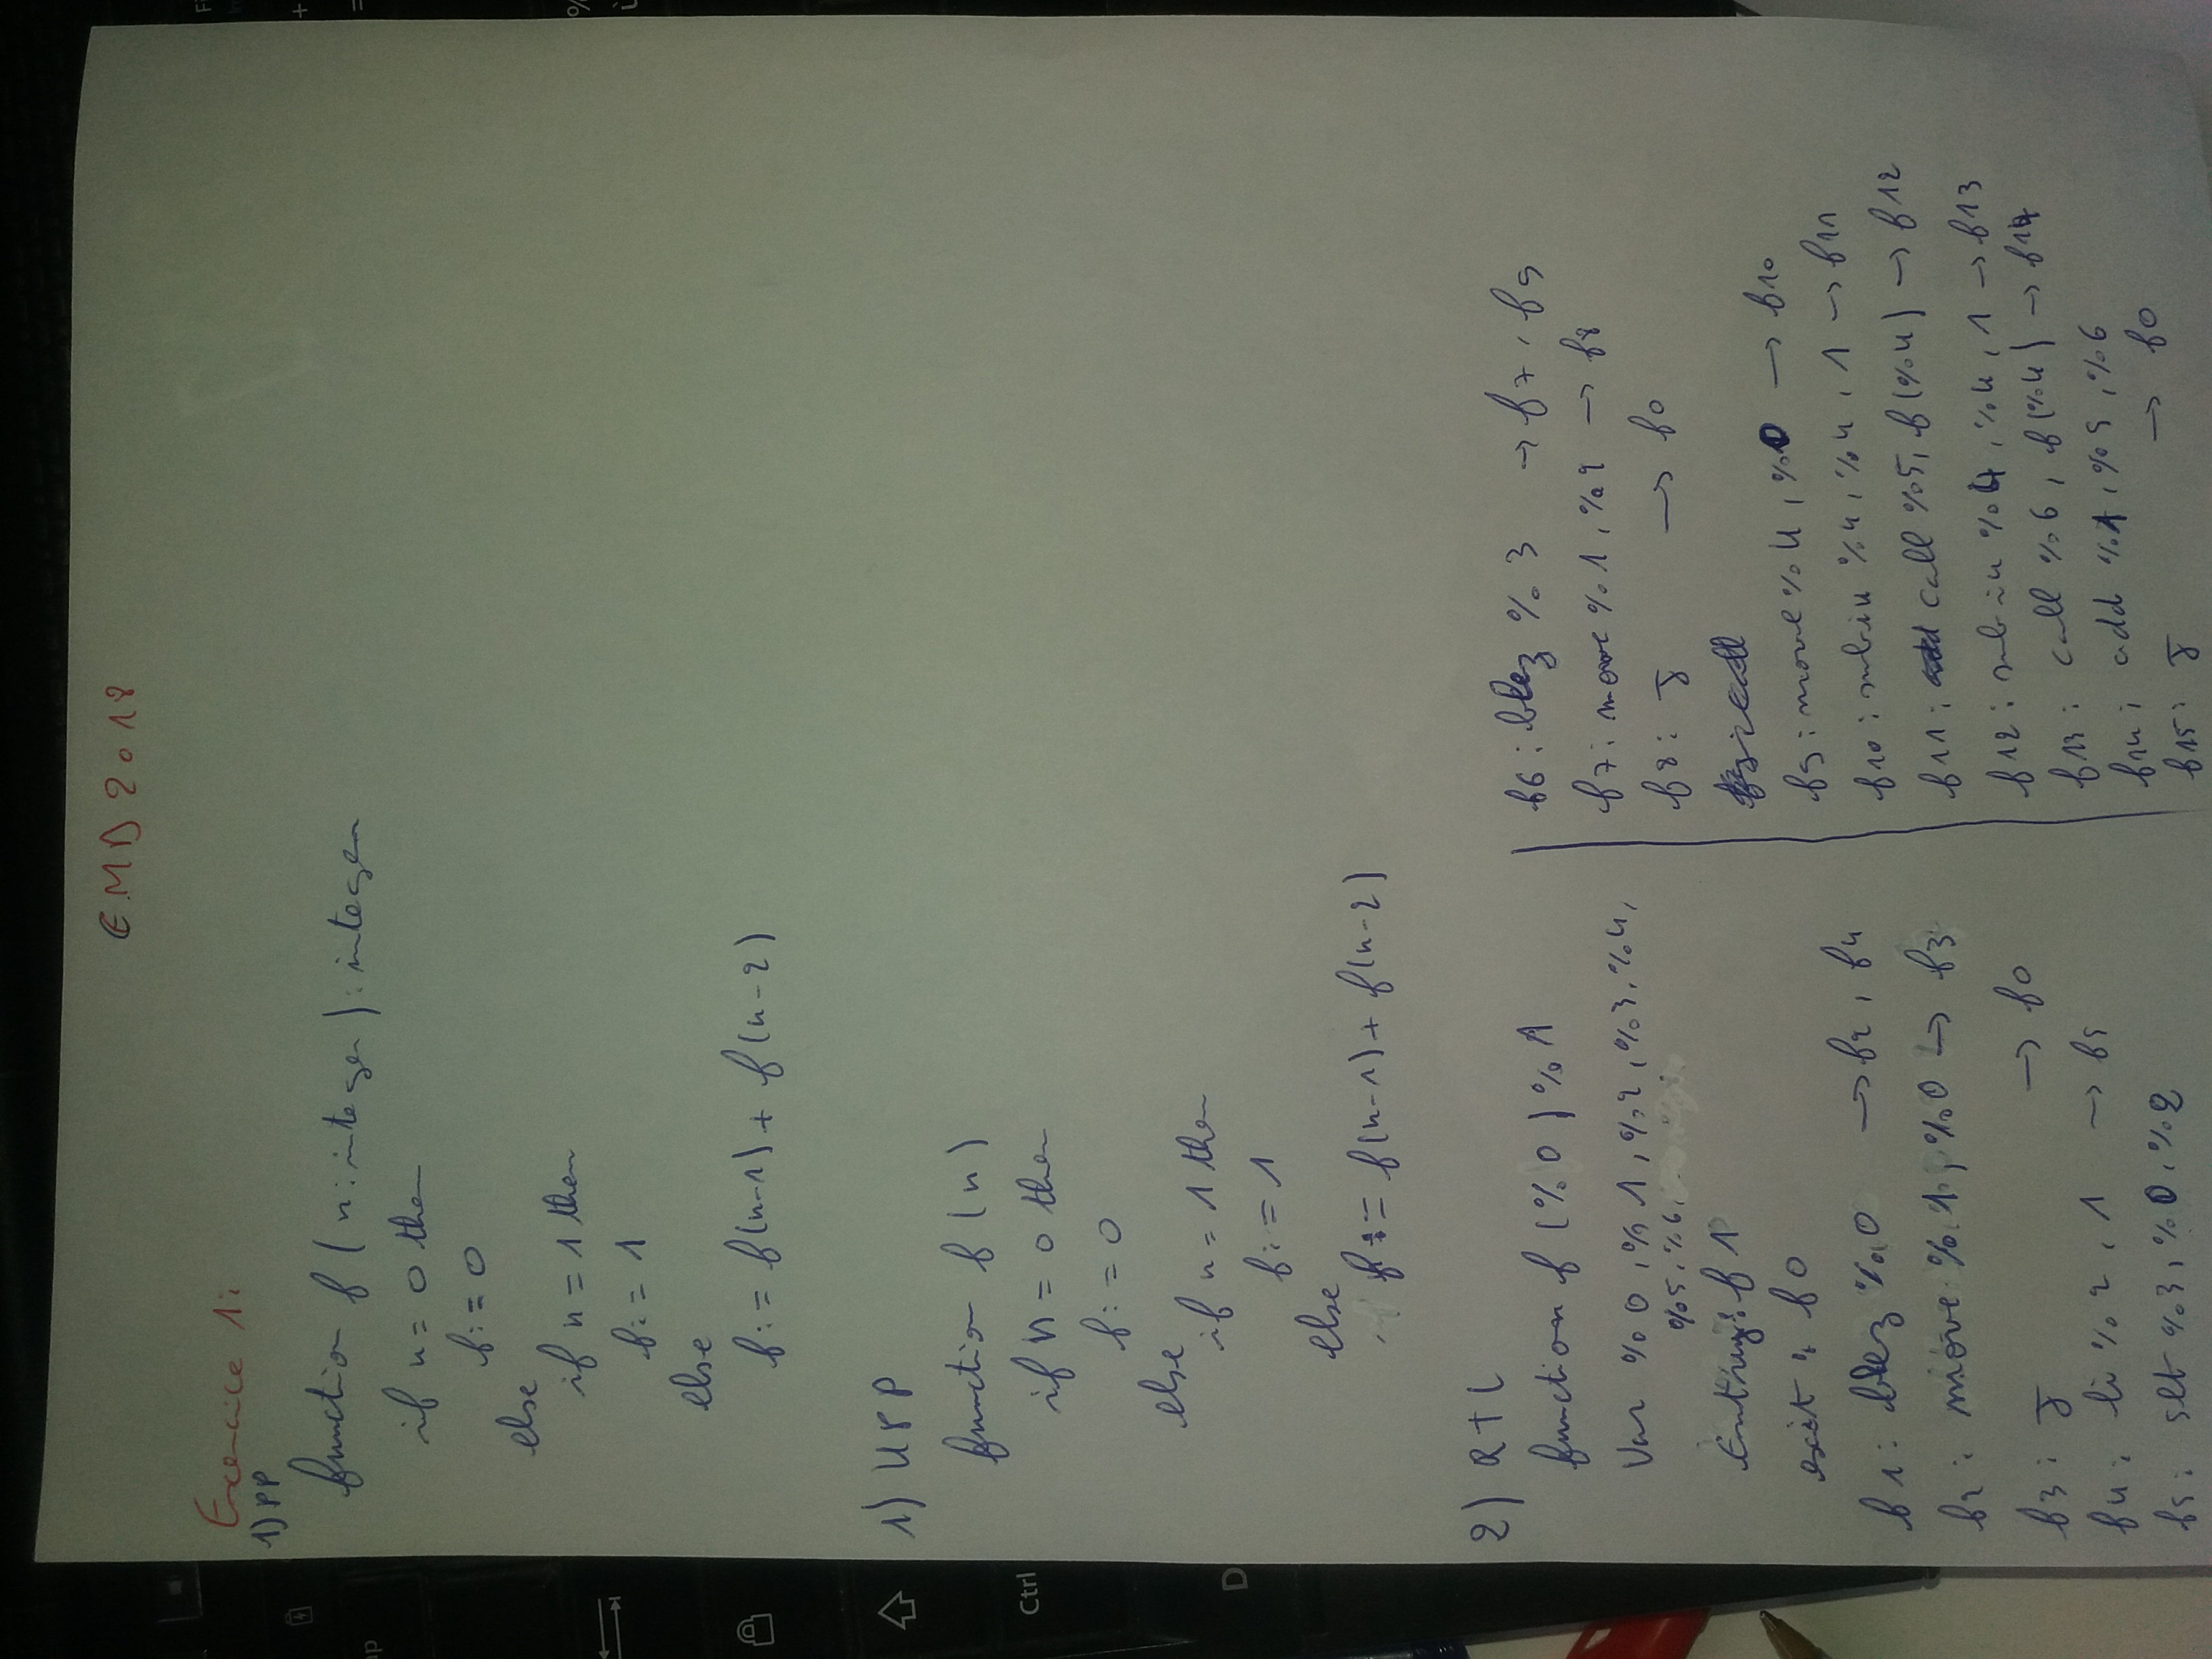 EMD 2018
Exercice 1:
1) PP
function f (n : integer) : integer
if n = 0 then
f := 0
else
if n = 1 then
f := 1
else
f := f(n-1) + f(n-2)
1) UPP
function f (n)
if n = 0 then
f := 0
else
if n = 1 then
f := 1
else
f := f(n-1) + f(n-2)
2) RTL
function f (%0) %1
Var %0, %1, %2, %3, %4,
%5, %6,
Entry : f1
exit : f0
f1 : blez %0 → f2, f4
f2 : move %1, %0 → f3
f3 : J → f0
f4 : li %2, 1 → f5
f5 : slt %3, %0, %2
f6 : blez %3 → f7, f9
f7 : move %1, %2 → f8
f8 : J → f0
f9 : move %4, %0 → f10
f10 : subiu %4, %4, 1 → f11
f11 : call %5, f(%4) → f12
f12 : subiu %4, %4, 1 → f13
f13 : call %6, f(%4) → f14
f14 : add %1, %5, %6
f15 : J → f0
Ctrl
D